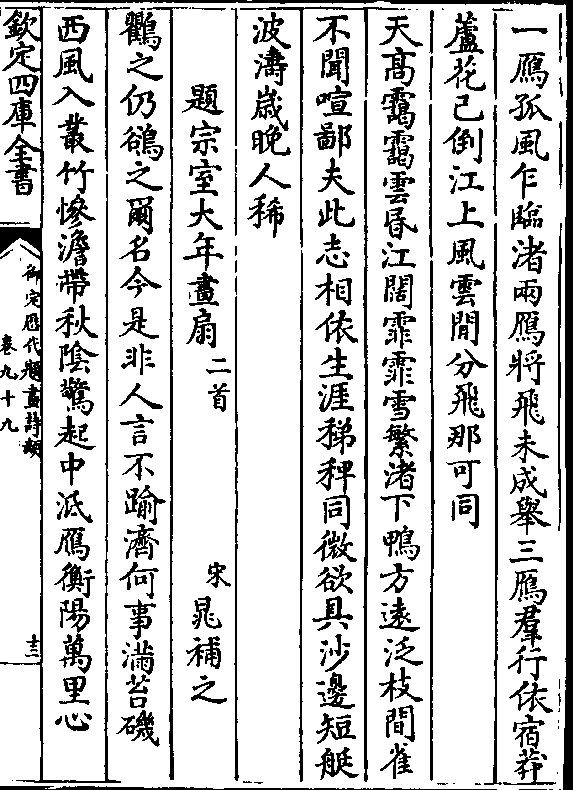 一鴈孤風乍臨渚兩鴈將飛未成舉三鴈羣行依宿莽
蘆花已倒江上風雲閒分飛那可同
天髙靄靄雲昬江闊霏霏雪繁渚下鴨方遠泛枝間雀
不聞喧鄙夫此志相依生涯稊稗同微欲具沙邊短艇
波濤嵗晚人稀
題宗室大年畫扇二首
宋晁補之
鸛之仍鵒之爾名今是非人言不踰濟何事滿苔磯
西風入叢竹慘澹帶秋陰驚起中泜鴈衡陽萬里心
欽定四庫全書
御定歷代題畫詩類
卷九十九
十二